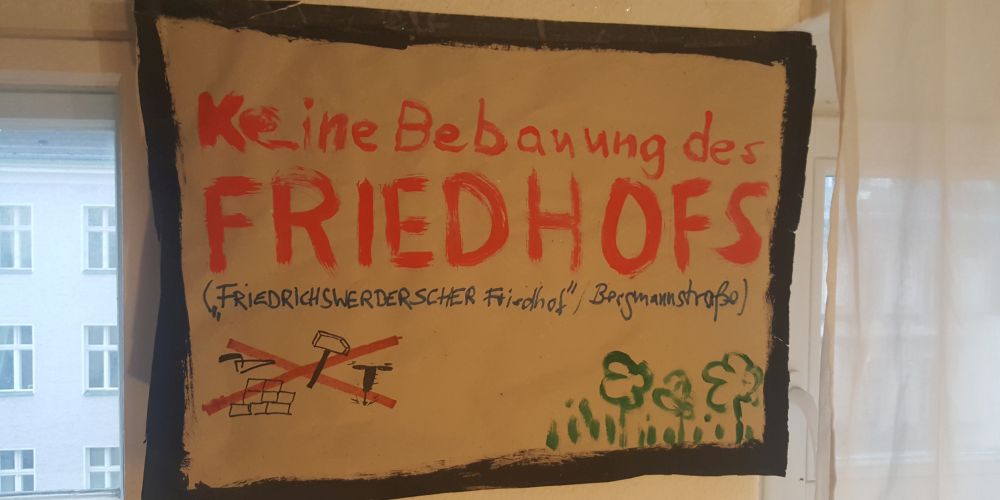 Keine Bebauung des
FRIEDHOFS
("FRIEDRICHSWERDERSCHER Friedhof"/Bergmannstraße)